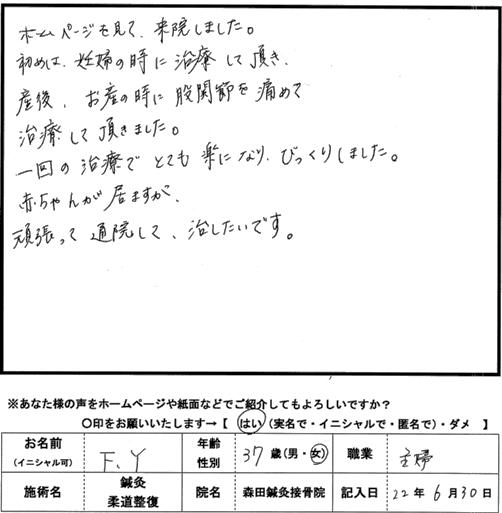 ホームページを見て、来院しました。
初めは、妊婦の時に治療して頂き、
産後、お産の時に股関節を痛めて
治療して頂きました。
一回の治療でとても楽になり、びっくりしました。
赤ちゃんが居ますが、
頑張って通院して、治したいです。
※あなた様の声をホームページや紙面などでご紹介してもよろしいですか？
〇印をお願いいたします→【 はい（実名で・イニシャルで・匿名で）・ダメ 】
お名前（イニシャル可） F、Y 年齢性別 37歳（男・女） 職業 主婦
施術名 鍼灸 柔道整復 院名 森田鍼灸接骨院 記入日 22年6月30日